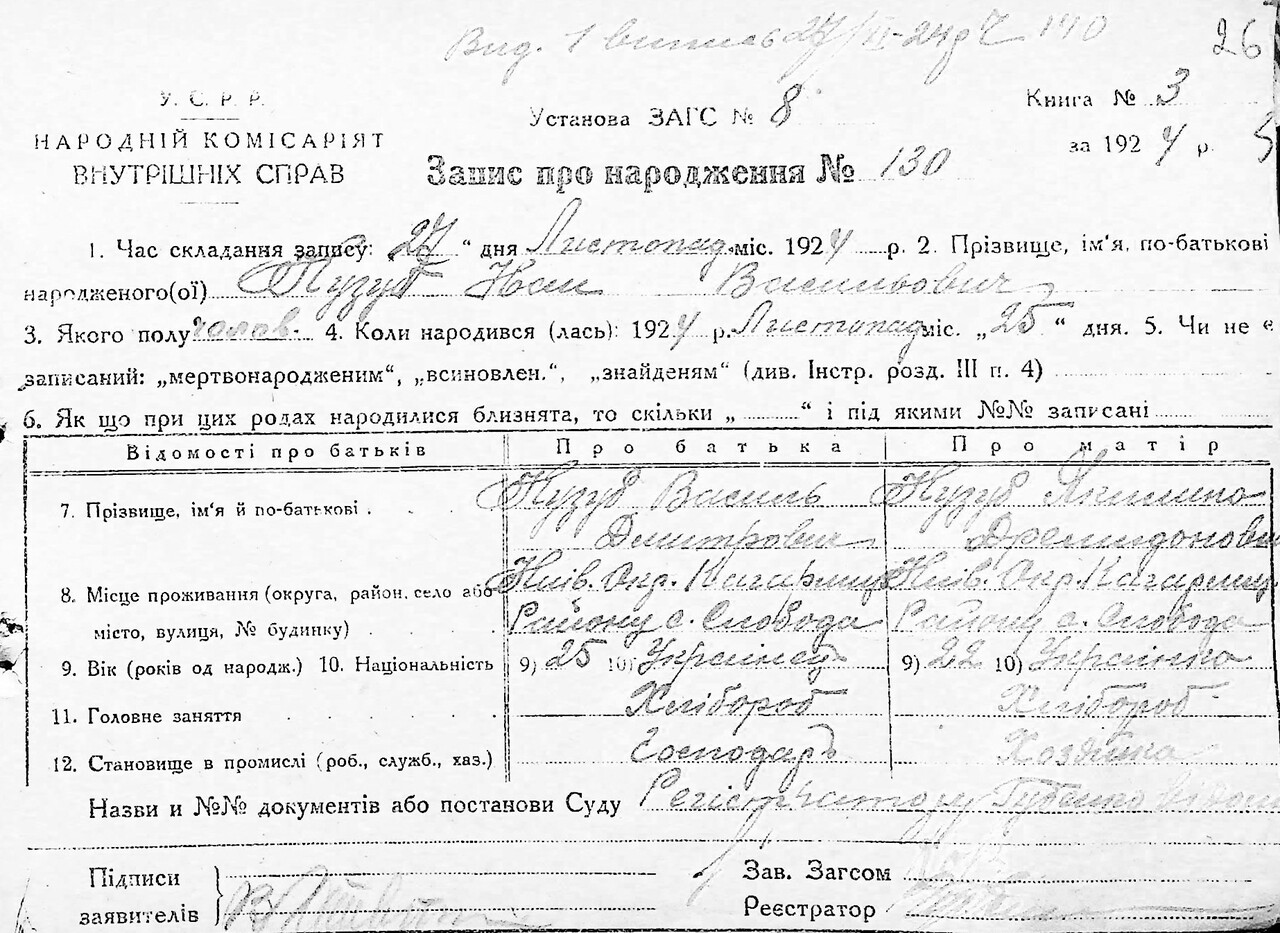 Вид. 1 випись 27/XI-24 р № 140
26
У. С. Р. Р.
НАРОДНІЙ КОМІСАРІЯТ
ВНУТРІШНІХ СПРАВ
Установа ЗАГС № 8
Книга № 3
за 1924 р. 5
Запис про народження № 130
1. Час складання запису: 27 “ дня Листопад міс. 1924 р. 2. Прізвище, ім'я, по-батькові
народженого(ої) Кузуб Іван Васильович
3. Якого полу чолов. 4. Коли народився (лась): 1924 р. Листопад міс. „25“ дня. 5. Чи не є
записаний: „мертвонародженим“, „всиновлен.“, „знайденям“ (див. Інстр. розд. III п. 4)
6. Як що при цих родах народилися близнята, то скільки „ “ і під якими №№ записані
Відомості про батьків Про батька Про матір
7. Прізвище, ім'я й по-батькові . Кузуб Василь Кузуб Якилина
Дмитрович
8. Місце проживання (округа, район, село або Київ. Окр. Кагарлиц Київ. Окр. Кагарлиц
місто, вулиця, № будинку) . Району с. Слобода Району с. Слобода
9. Вік (років од народж.) 10. Національність 9) 25 10) Українец 9) 22 10) Українка
11. Головне заняття Хлібороб Хлібороб
12. Становище в промислі (роб., служб., хаз.) Господарь Хозяйка
Назви и №№ документів або постанови Суду
Підписи
заявителів
Зав. Загсом
Реєстратор